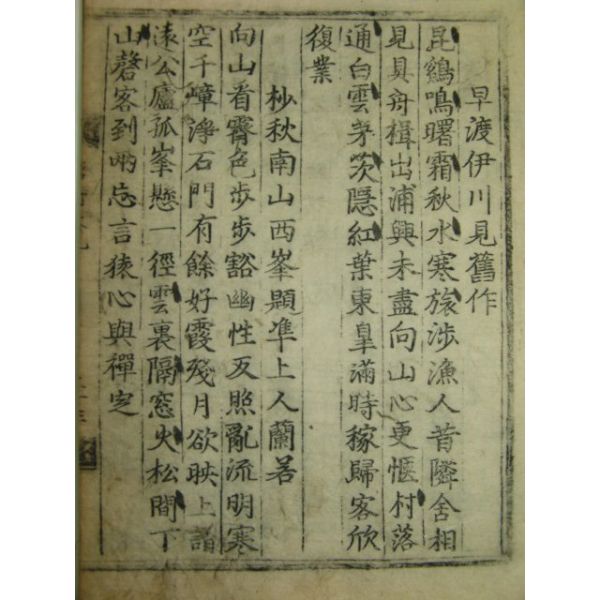 早渡伊川見舊作
昆鷄鳴曙霜秋水寒旅涉漁人昔隣舍相
見具舟楫出浦興未盡向山心更愜村落
通白雲茅茨隱紅葉東皐滿時稼歸客欣
復業
杪秋南山西峯題凖上人蘭若
向山看霽色步步豁幽性反照亂流明寒
空千嶂淨石門有餘好霞殘月欲映上詣
遠公廬孤峯懸一徑雲裏隔窓火松間下
山磬客到兩忘言猿心與禪定